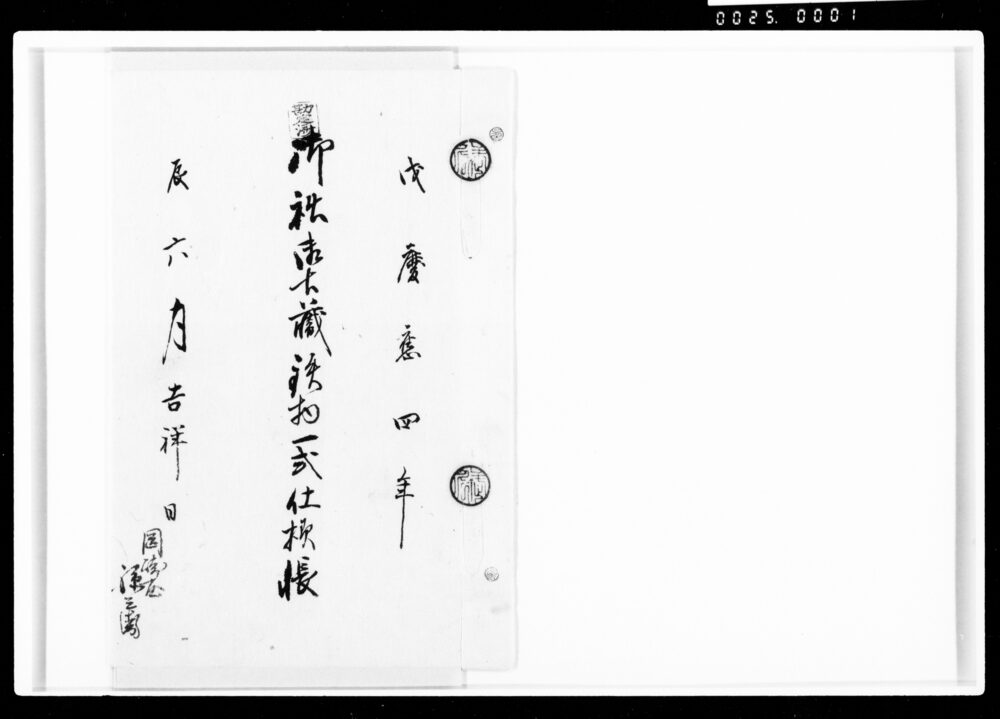 0025. 0001
戊慶應四年
御土蔵銕物一式仕様帳
辰六月吉祥日
岡崎屋